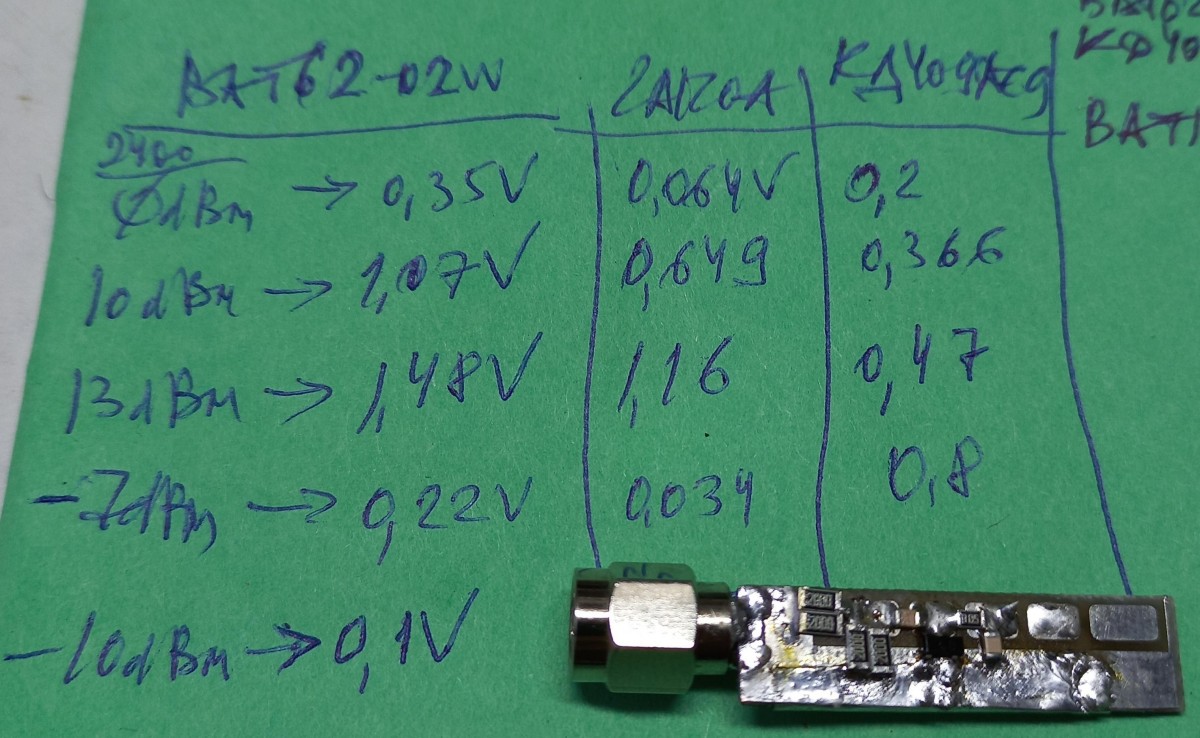 BAT62-02W 2A120A КД409А9
2400
0dBm → 0,35V 0,064V 0,2
10dBm → 1,07V 0,649 0,366
13dBm → 1,48V 1,16 0,47
-7dBm → 0,22V 0,034 0,8
-10dBm → 0,1V
BAT1